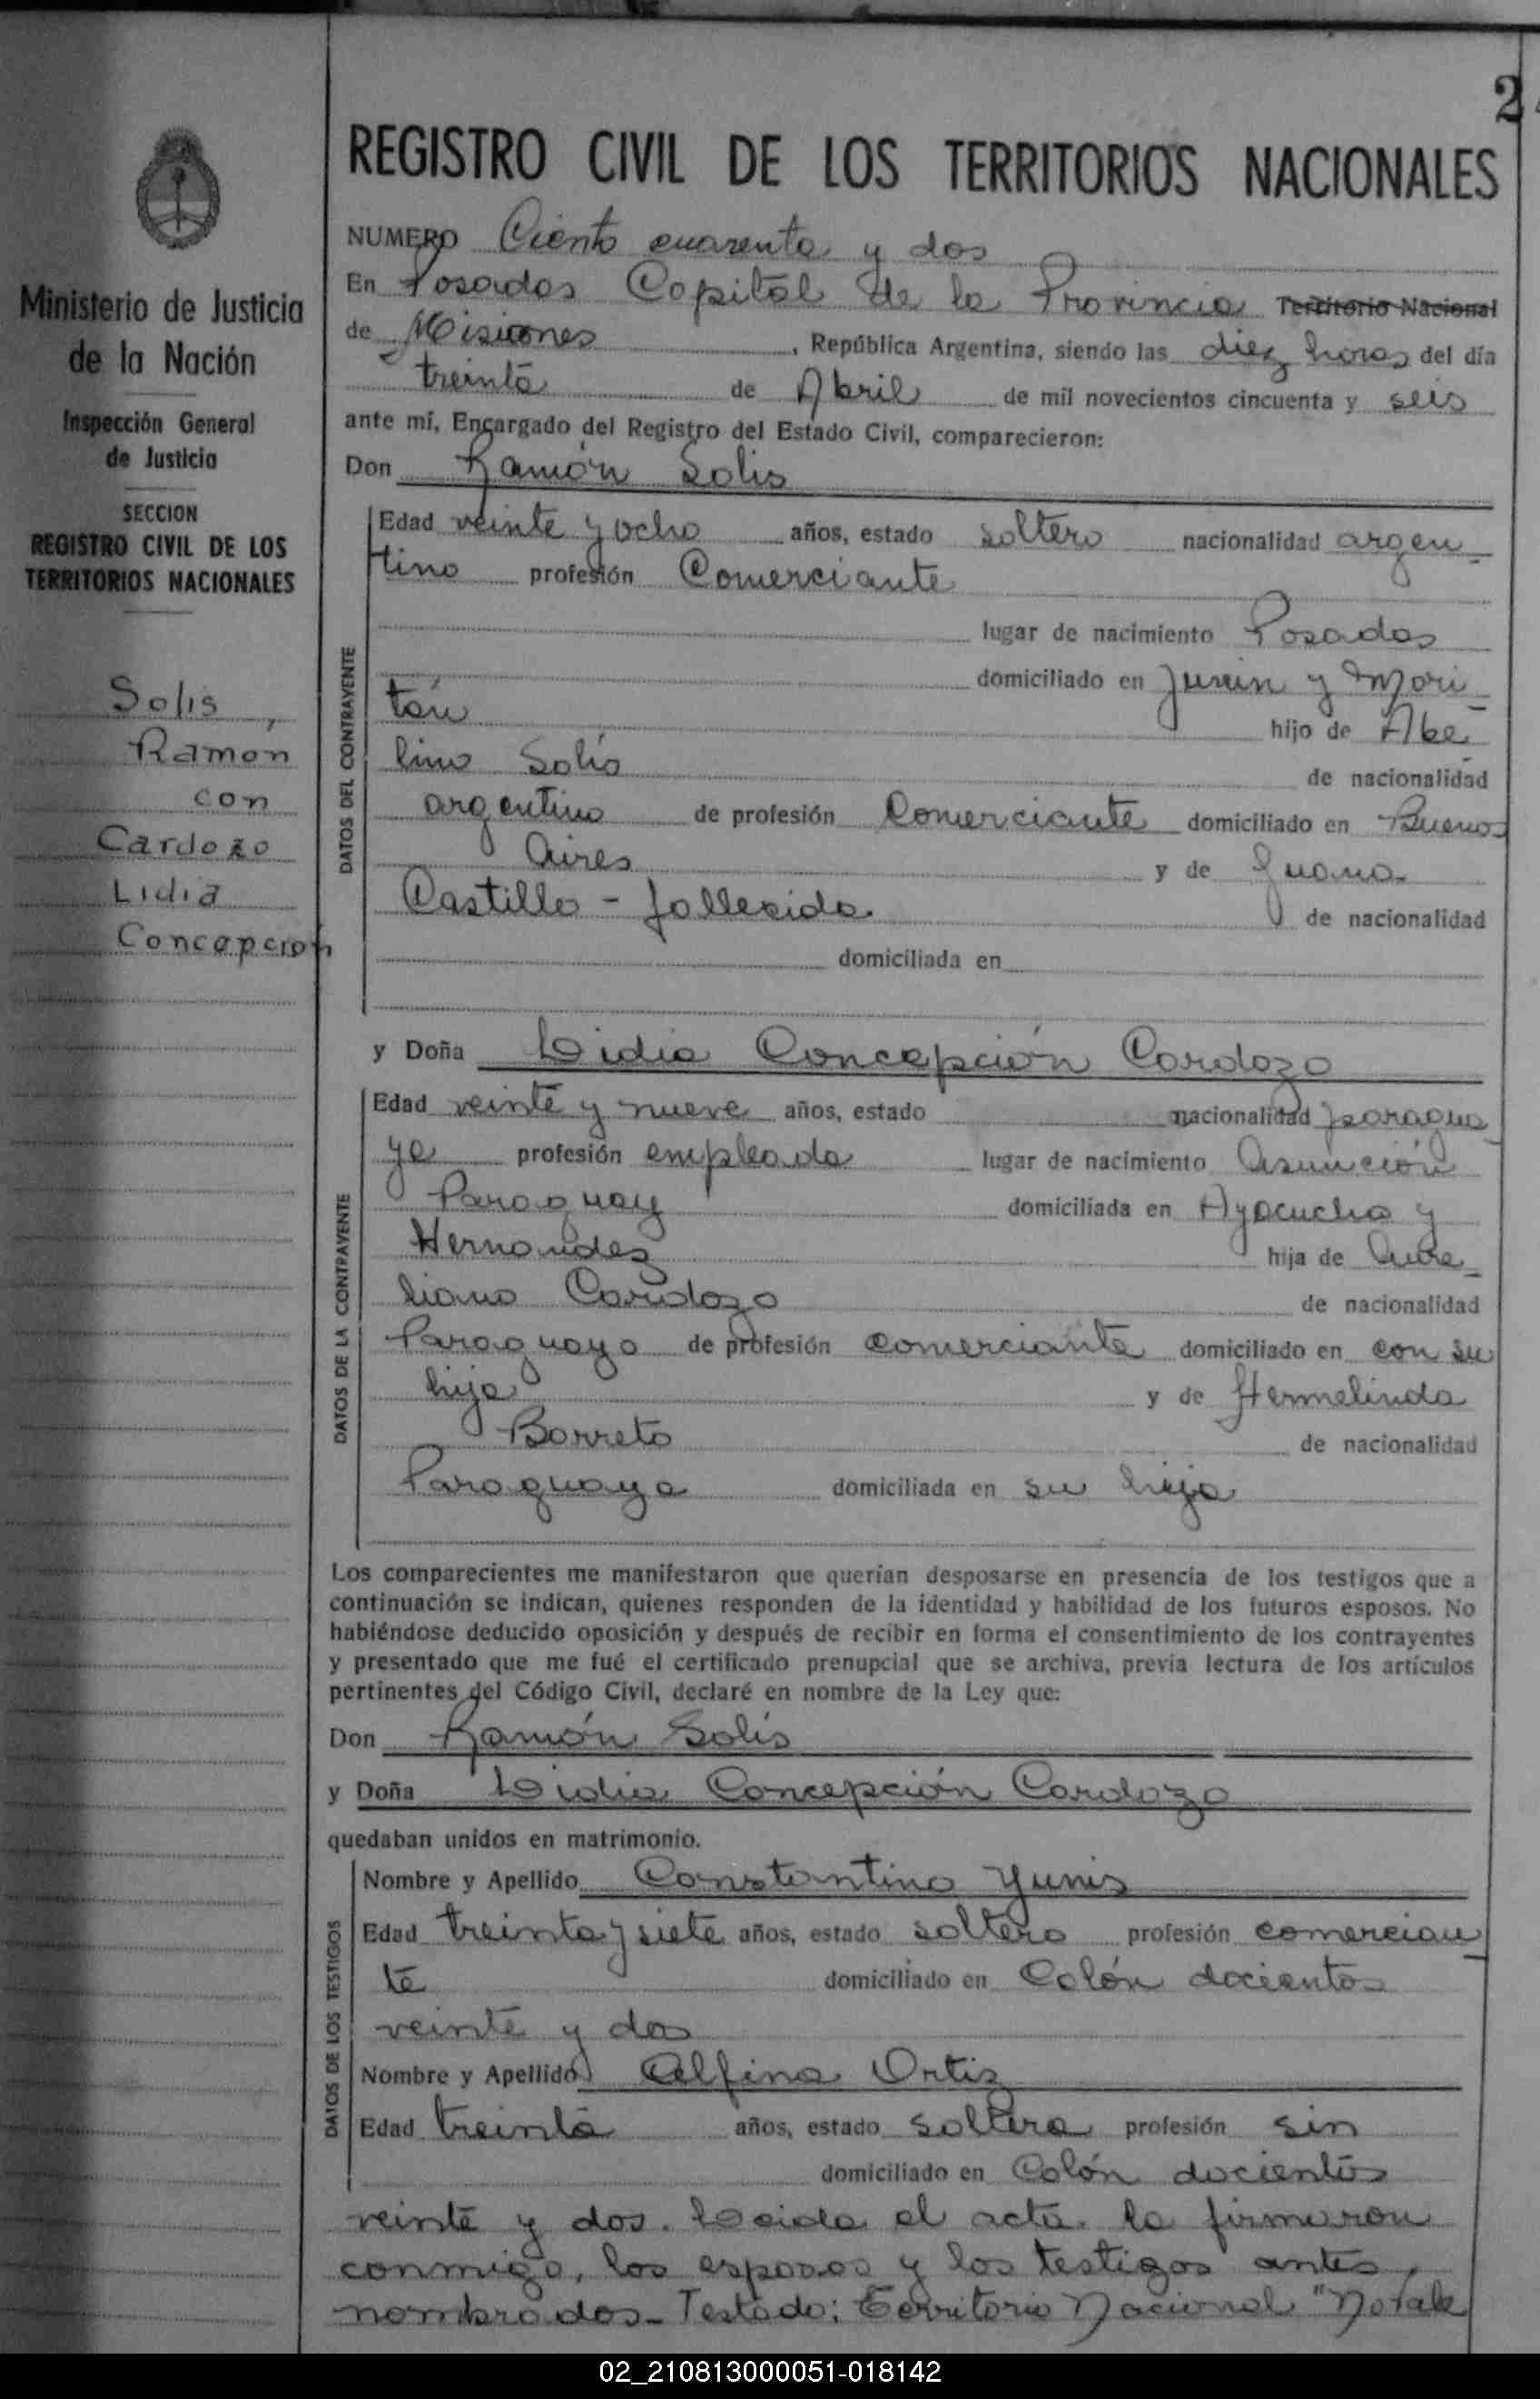 2
REGISTRO CIVIL DE LOS TERRITORIOS NACIONALES
NUMERO Ciento cuarenta y dos
En Posadas Capital de la Provincia Territorio Nacional
de Misiones, República Argentina, siendo las diez horas del día
treinta de Abril de mil novecientos cincuenta y seis
ante mí, Encargado del Registro del Estado Civil, comparecieron:
Don Ramón Solis
Edad veinte y ocho años, estado soltero nacionalidad argen-
tino profesión Comerciante
lugar de nacimiento Posadas
domiciliado en Junín y
hijo de Abe-
lino Solís
de nacionalidad
argentino de profesión Comerciante domiciliado en Buenos
Aires y de Juana
Castillo - fallecida de nacionalidad
domiciliada en
y Doña Lidia Concepción Cardozo
Edad veinte y nueve años, estado nacionalidad paragua-
ya profesión empleada lugar de nacimiento Asunción
Paraguay domiciliada en Ayacucho y
Hernandez hija de Aure-
liano Cardozo de nacionalidad
Paraguayo de profesión comerciante domiciliado en con su
hija y de Hermelinda
Borreto de nacionalidad
Paraguaya domiciliada en su hija
Los comparecientes me manifestaron que querían desposarse en presencia de los testigos que a
continuación se indican, quienes responden de la identidad y habilidad de los futuros esposos. No
habiéndose deducido oposición y después de recibir en forma el consentimiento de los contrayentes
y presentado que me fué el certificado prenupcial que se archiva, previa lectura de los artículos
pertinentes del Código Civil, declaré en nombre de la Ley que:
Don Ramón Solís
y Doña Lidia Concepción Cardozo
quedaban unidos en matrimonio.
Nombre y Apellido Constantino Yunis
Edad treinta y siete años, estado soltero profesión comercian-
te domiciliado en Colón docientos
veinte y dos
Nombre y Apellido Alfina Ortiz
Edad treinta años, estado soltera profesión sin
domiciliado en Colón docientos
veinte y dos. Leida el acta la firmaron
conmigo, los esposos y los testigos antes
nombrados- Testado: Territorio Nacional "No vale
Ministerio de Justicia
de la Nación
Inspección General
de Justicia
SECCION
REGISTRO CIVIL DE LOS
TERRITORIOS NACIONALES
Solis,
Ramón
con
Cardozo
Lidia
Concepción
DATOS DEL CONTRAYENTE
DATOS DE LA CONTRAYENTE
DATOS DE LOS TESTIGOS
02_210813000051-018142